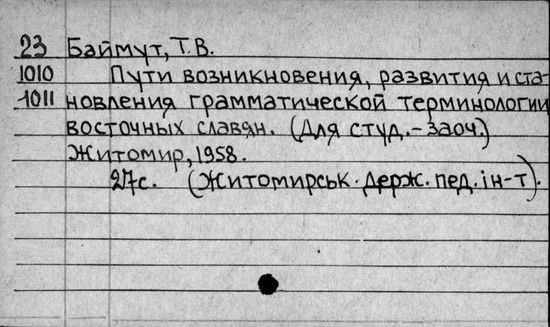 23 Баймут, Т.В.
1010 Пути возникновения, развития и ста-
1011 новления грамматической терминологии
восточных славян. (Для студ.-заоч.)
Житомир, 1958.
27с. (Житомирськ. держ. пед. iн-т).